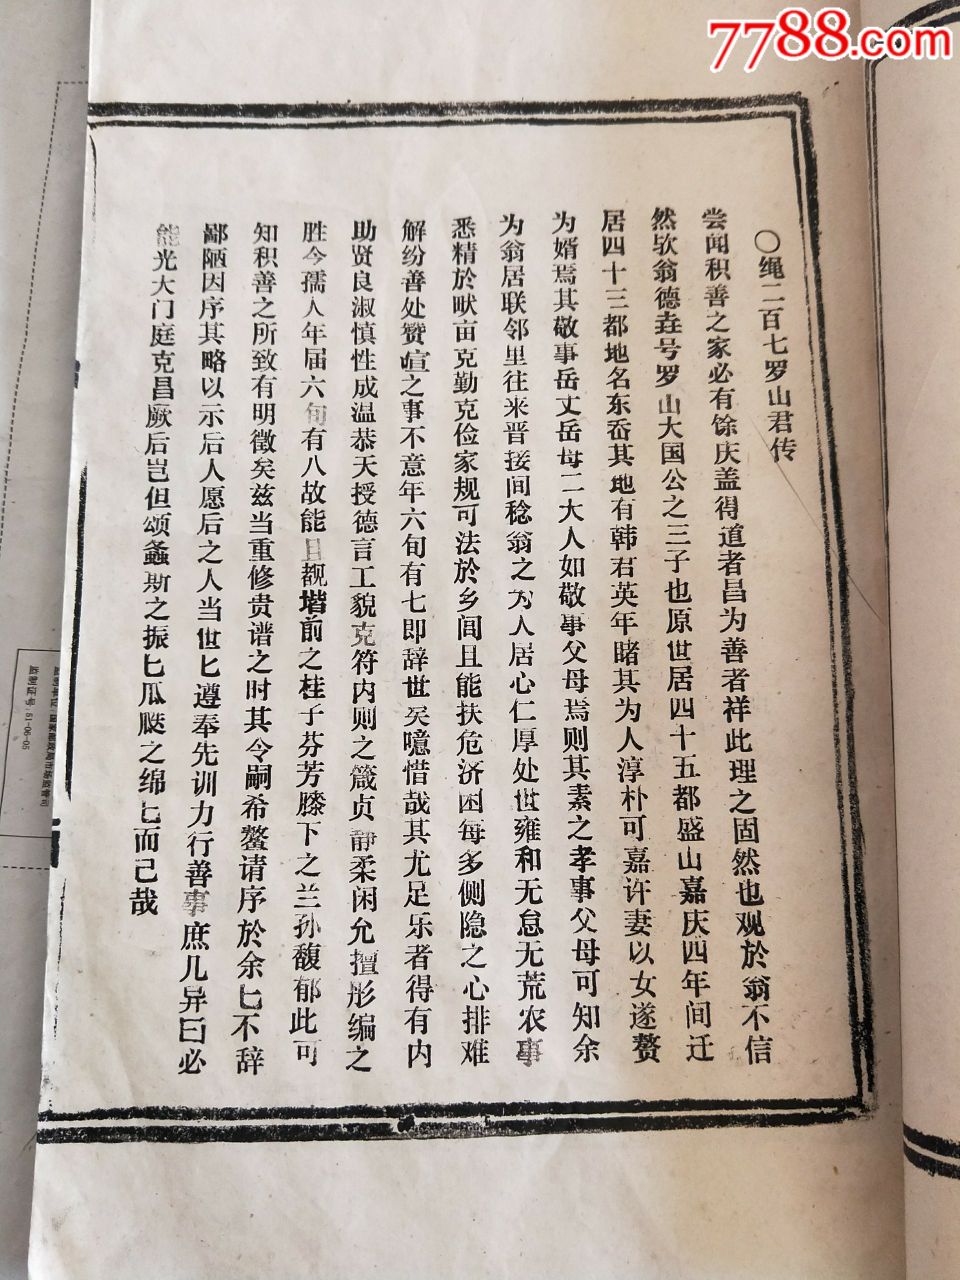 7788.com
〇绳二百七罗山君传
尝闻积善之家必有馀庆盖得道者昌为善者祥此理之固然也观於翁不信
然欤翁德垚号罗山大国公之三子也原世居四十五都盛山嘉庆四年间迁
居四十三都地名东岙其地有韩君英年睹其为人淳朴可嘉许妻以女遂赘
为婿焉其敬事岳丈岳母二大人如敬事父母焉则其素之孝事父母可知余
为翁居联邻里往来晋接间稔翁之为人居心仁厚处世雍和无怠无荒农事
悉精於畎亩克勤克俭家规可法於乡闾且能扶危济困每多侧隐之心排难
解纷善处赞喧之事不意年六旬有七即辞世矣噫惜哉其尤足乐者得有内
助贤良淑慎性成温恭天授德言工貌克符内则之箴贞静柔闲允擅彤编之
胜今孺人年届六旬有八故能目觏堦前之桂子芬芳膝下之兰孙馥郁此可
知积善之所致有明徵矣兹当重修贵谱之时其令嗣希鳌请序於余匕不辞
鄙陋因序其略以示后人愿后之人当世匕遵奉先训力行善事庶几异曰必
能光大门庭克昌厥后岂但颂螽斯之振匕瓜瓞之绵匕而已哉
监制证号:51-06-05